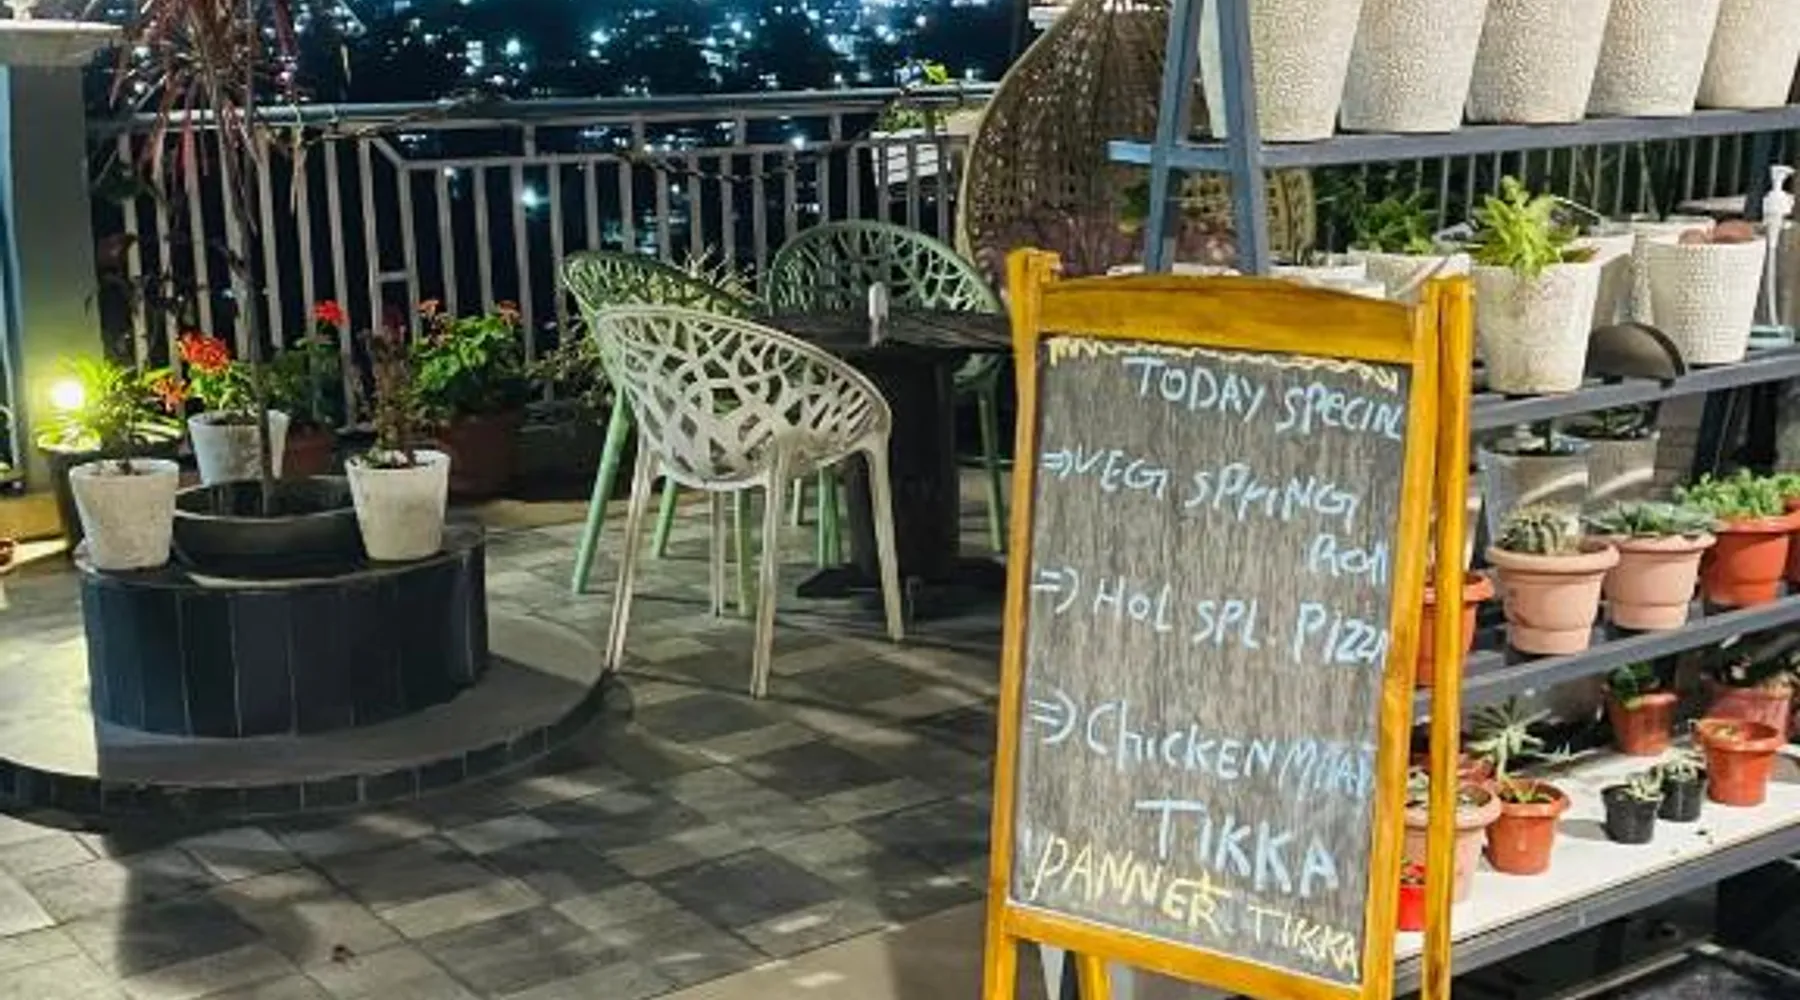 TODAY SPECIAL
⇒VEG SPRING
Roll
⇒ HOL SPL. PIZZA
⇒ CHICKEN
TIKKA
PANNER TIKKA